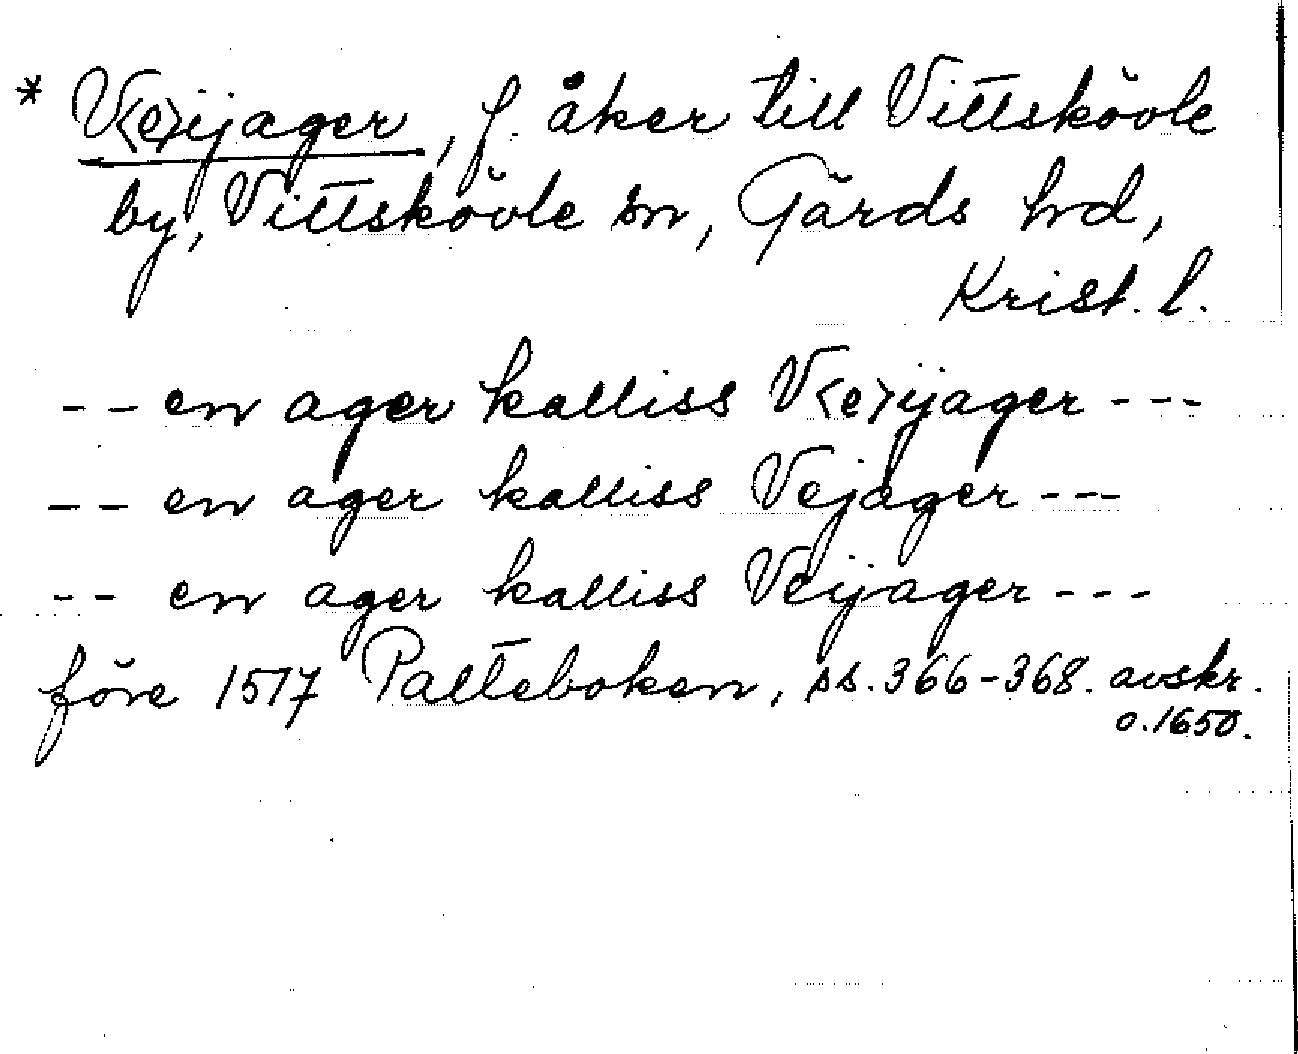 * V<e>ijager, f. åker till Vittskövle
by, Vittskövle sn, Gärds hd,
Krist. l.
-- en ager kalliss V<e>ijager ---
-- en ager kalliss Vejager ---
-- en ager kalliss Veijager ---
före 1517 Palteboken, ss. 366-368. avskr.
o. 1650.